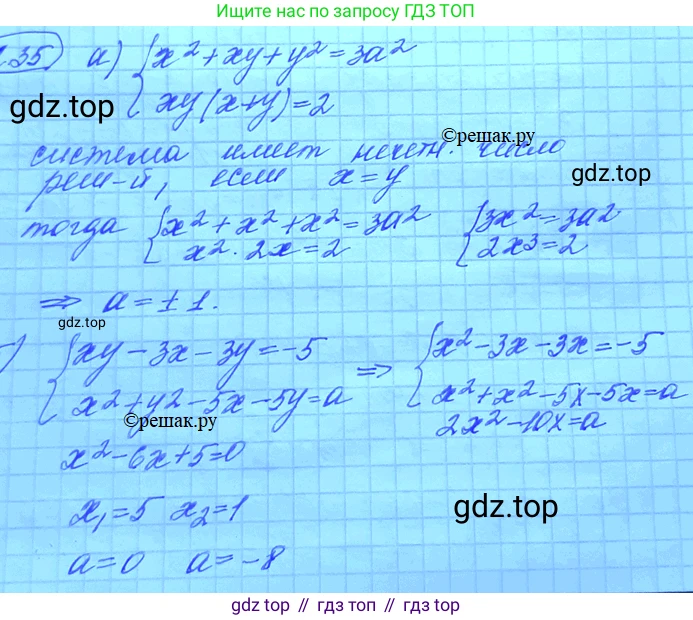 Ищите нас по запросу ГДЗ ТОП
.35 а) { x² + xy + y² = 3a²
xy(x+y) = 2
gdz.top
©решак.ру
система имеет нечетн. число
реш-й, если x = y
gdz.top
тогда { x² + x² + x² = 3a² { 3x² = 3a²
x² · 2x = 2 2x³ = 2
⇒ a = ± 1.
gdz.top
) { xy - 3x - 3y = -5 ⇒ { x² - 3x - 3x = -5
x² + y² - 5x - 5y = a x² + x² - 5x - 5x = a
©решак.ру
2x² - 10x = a
x² - 6x + 5 = 0
x₁ = 5 x₂ = 1
gdz.top
a = 0 a = -8
gdz.top // гдз топ // гдз.top